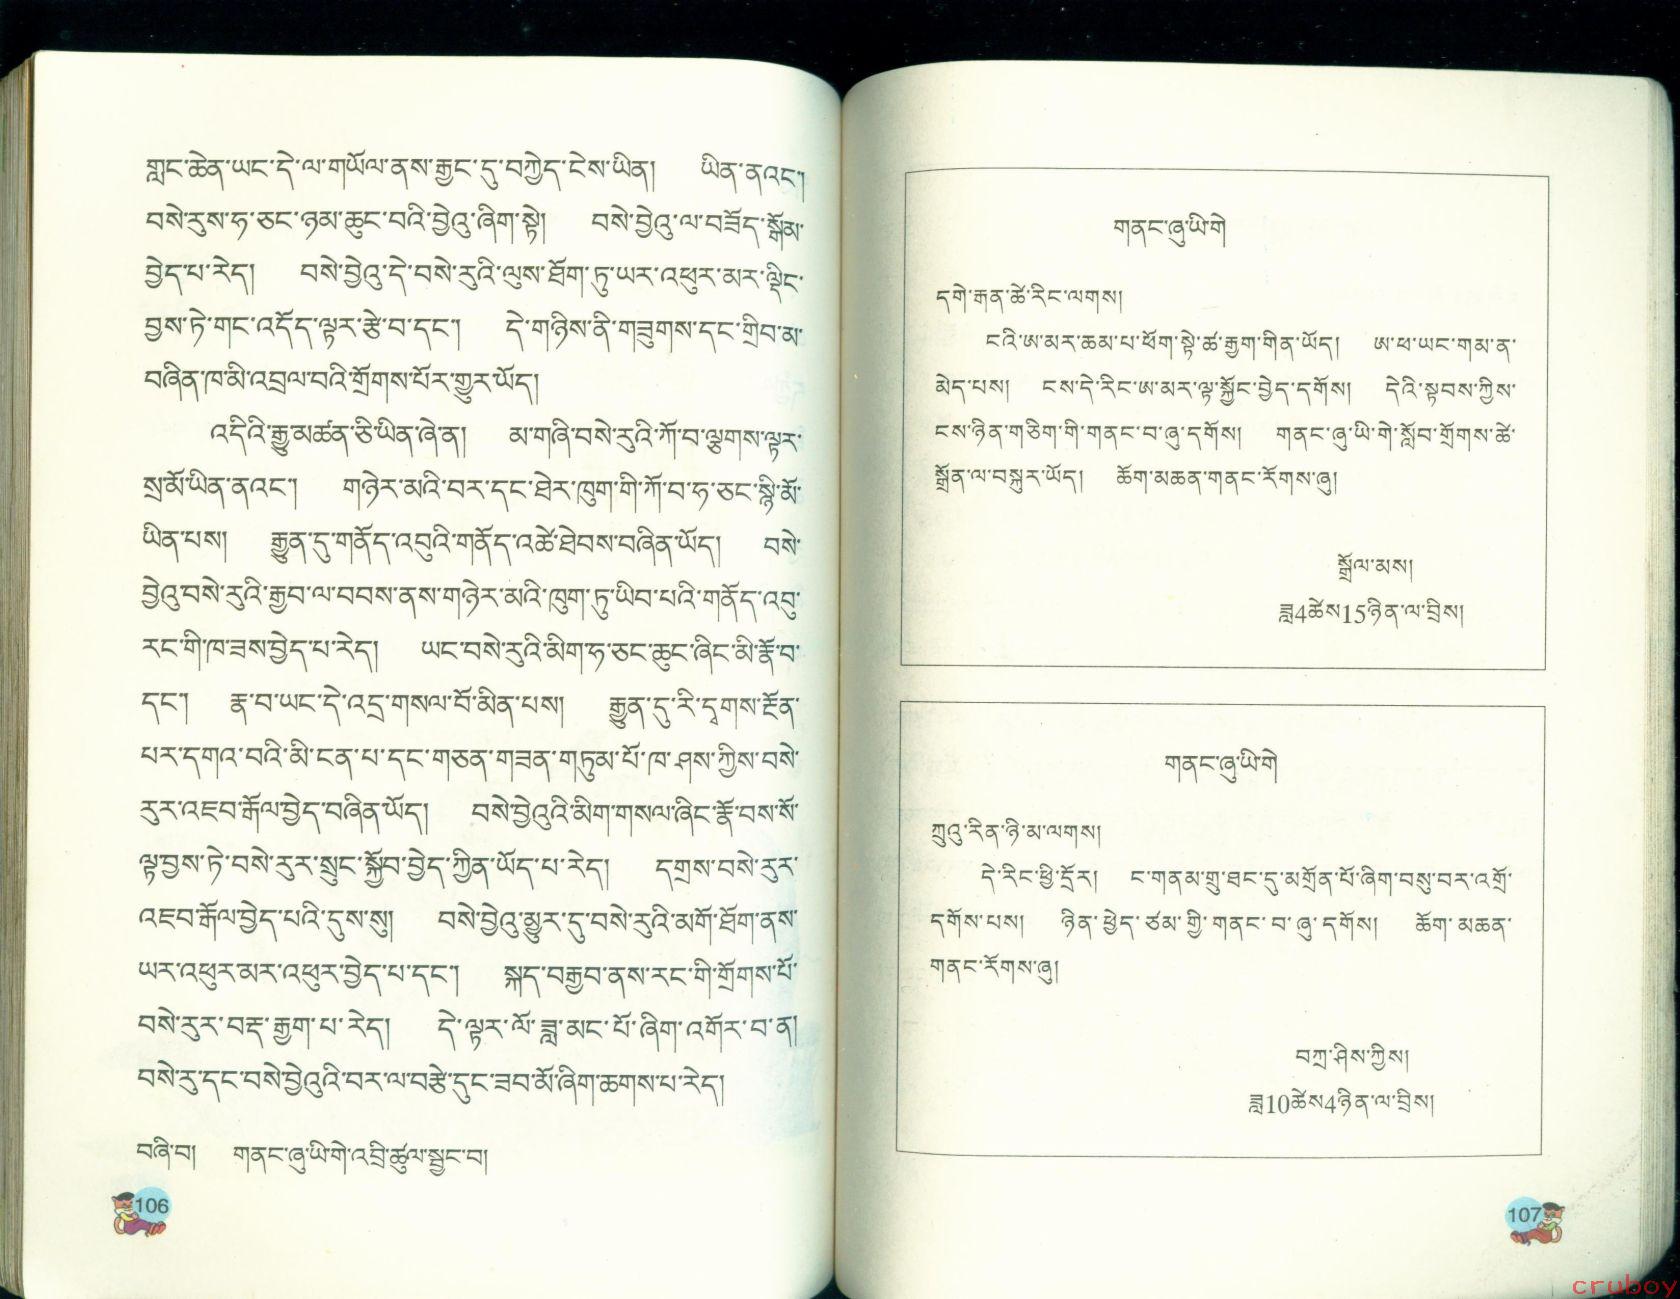 གླང་ཆེན་ཡང་དེ་ལ་གཡོལ་ནས་རྒྱང་དུ་བཀྱེད་ངེས་ཡིན། ཡིན་ནའང་།
བསེ་རུས་ཧ་ཅང་ཉམ་ཆུང་བའི་བྱེའུ་ཞིག་སྟེ། བསེ་བྱེའུ་ལ་བཟོད་སྒོམ་
བྱེད་པ་རེད། བསེ་བྱེའུ་དེ་བསེ་རུའི་ལུས་ཐོག་ཏུ་ཡར་འཕུར་མར་ལྡིང་
བྱས་ཏེ་གང་འདོད་ལྟར་རྩེ་བ་དང་། དེ་གཉིས་ནི་གཟུགས་དང་གྲིབ་མ་
བཞིན་ཁ་མི་འབྲལ་བའི་གྲོགས་པོར་གྱུར་ཡོད།
འདིའི་རྒྱུ་མཚན་ཅི་ཡིན་ཞེ་ན། མ་གཞི་བསེ་རུའི་ཀོ་བ་ལྕགས་ལྟར་
སྲ་མོ་ཡིན་ནའང་། གཉེར་མའི་བར་དང་ཐེར་ཁུག་གི་ཀོ་བ་ཧ་ཅང་སྙི་མོ་
ཡིན་པས། རྒྱུན་དུ་གནོད་འབུའི་གནོད་འཚེ་ཐེབས་བཞིན་ཡོད། བསེ་
བྱེའུ་བསེ་རུའི་རྒྱབ་ལ་བབས་ནས་གཉེར་མའི་ཁུག་ཏུ་ཡིབ་པའི་གནོད་འབུ་
རང་གི་ཁ་ཟས་བྱེད་པ་རེད། ཡང་བསེ་རུའི་མིག་ཧ་ཅང་ཆུང་ཞིང་མི་རྣོ་བ་
དང་། རྣ་བ་ཡང་དེ་འདྲ་གསལ་པོ་མིན་པས། རྒྱུན་དུ་རི་དྭགས་རྔོན་
པར་དགའ་བའི་མི་ངན་པ་དང་གཅན་གཟན་གཏུམ་པོ་ཁ་ཤས་ཀྱིས་བསེ་
རུར་འཇབ་རྒོལ་བྱེད་བཞིན་ཡོད། བསེ་བྱེའུའི་མིག་གསལ་ཞིང་རྣོ་བས་སོ་
ལྟ་བྱས་ཏེ་བསེ་རུར་སྲུང་སྐྱོབ་བྱེད་ཀྱིན་ཡོད་པ་རེད། དགྲས་བསེ་རུར་
འཇབ་རྒོལ་བྱེད་པའི་དུས་སུ། བསེ་བྱེའུ་མྱུར་དུ་བསེ་རུའི་མགོ་ཐོག་ནས་
ཡར་འཕུར་མར་འཕུར་བྱེད་པ་དང་། སྐད་བརྒྱབ་ནས་རང་གི་གྲོགས་པོ་
བསེ་རུར་བརྡ་རྒྱག་པ་རེད། དེ་ལྟར་ལོ་ཟླ་མང་པོ་ཞིག་འགོར་བ་ན།
བསེ་རུ་དང་བསེ་བྱེའུའི་བར་ལ་བརྩེ་དུང་ཟབ་མོ་ཞིག་ཆགས་པ་རེད།
བཞི་བ། གནང་ཞུ་ཡི་གེ་འབྲི་ཚུལ་སྦྱང་བ།
106
གནང་ཞུ་ཡི་གེ
དགེ་རྒན་ཚེ་རིང་ལགས།
ངའི་ཨ་མར་ཆམ་པ་ཕོག་སྟེ་ཚ་རྒྱག་གིན་ཡོད། ཨ་ཕ་ཡང་གམ་ན་
མེད་པས། ངས་དེ་རིང་ཨ་མར་ལྟ་སྐྱོང་བྱེད་དགོས། དེའི་སྟབས་ཀྱིས་
ངས་ཉིན་གཅིག་གི་གནང་བ་ཞུ་དགོས། གནང་ཞུ་ཡི་གེ་སློབ་གྲོགས་ཚེ་
སྒྲོན་ལ་བསྐུར་ཡོད། ཆོག་མཆན་གནང་རོགས་ཞུ།
སྒྲོལ་མས།
ཟླ4ཚེས15ཉིན་ལ་བྲིས།
གནང་ཞུ་ཡི་གེ
ཀྲུའུ་རིན་ཉི་མ་ལགས།
དེ་རིང་ཕྱི་དྲོར། ང་གནམ་གྲུ་ཐང་དུ་མགྲོན་པོ་ཞིག་བསུ་བར་འགྲོ་
དགོས་པས། ཉིན་ཕྱེད་ཙམ་གྱི་གནང་བ་ཞུ་དགོས། ཆོག་མཆན་
གནང་རོགས་ཞུ།
བཀྲ་ཤིས་ཀྱིས།
ཟླ10ཚེས4ཉིན་ལ་བྲིས།
107
cruboy